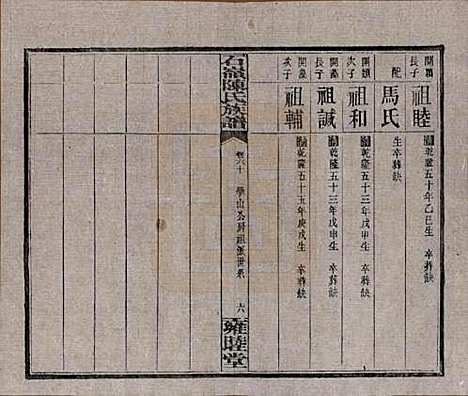 開穎長子
祖睦
乾隆五十年乙巳生 卒葬缺
配
馬氏
生卒葬缺
開穎次子
祖和
乾隆五十三年戊申生 卒葬缺
長子
祖誠
乾隆五十三年戊申生 卒葬缺
次子
祖輔
乾隆五十五年庚戌生 卒葬缺
石嶺陳氏族譜
卷六十
學山公房祖派世系
六
雍睦堂